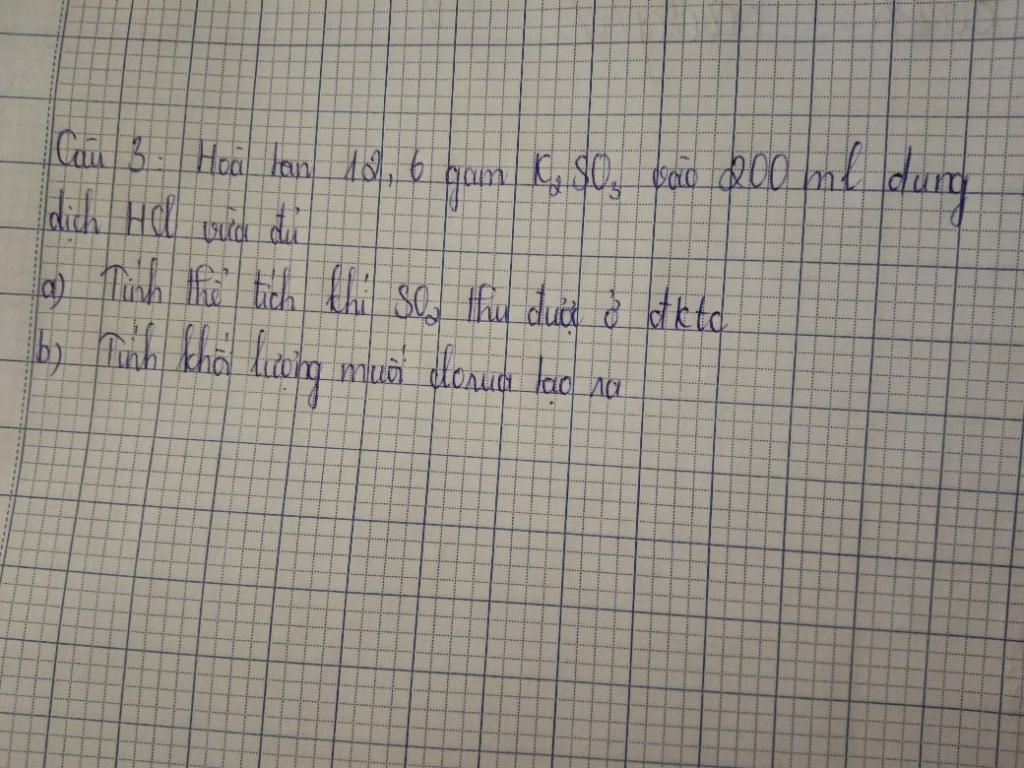 Câu 3: Hoà tan 12,6 gam K₂SO₃ vào 200 ml dung
dịch HCl vừa đủ
a) Tính thể tích khí SO₂ thu được ở đktc
b) Tính khối lượng muối clorua tạo ra